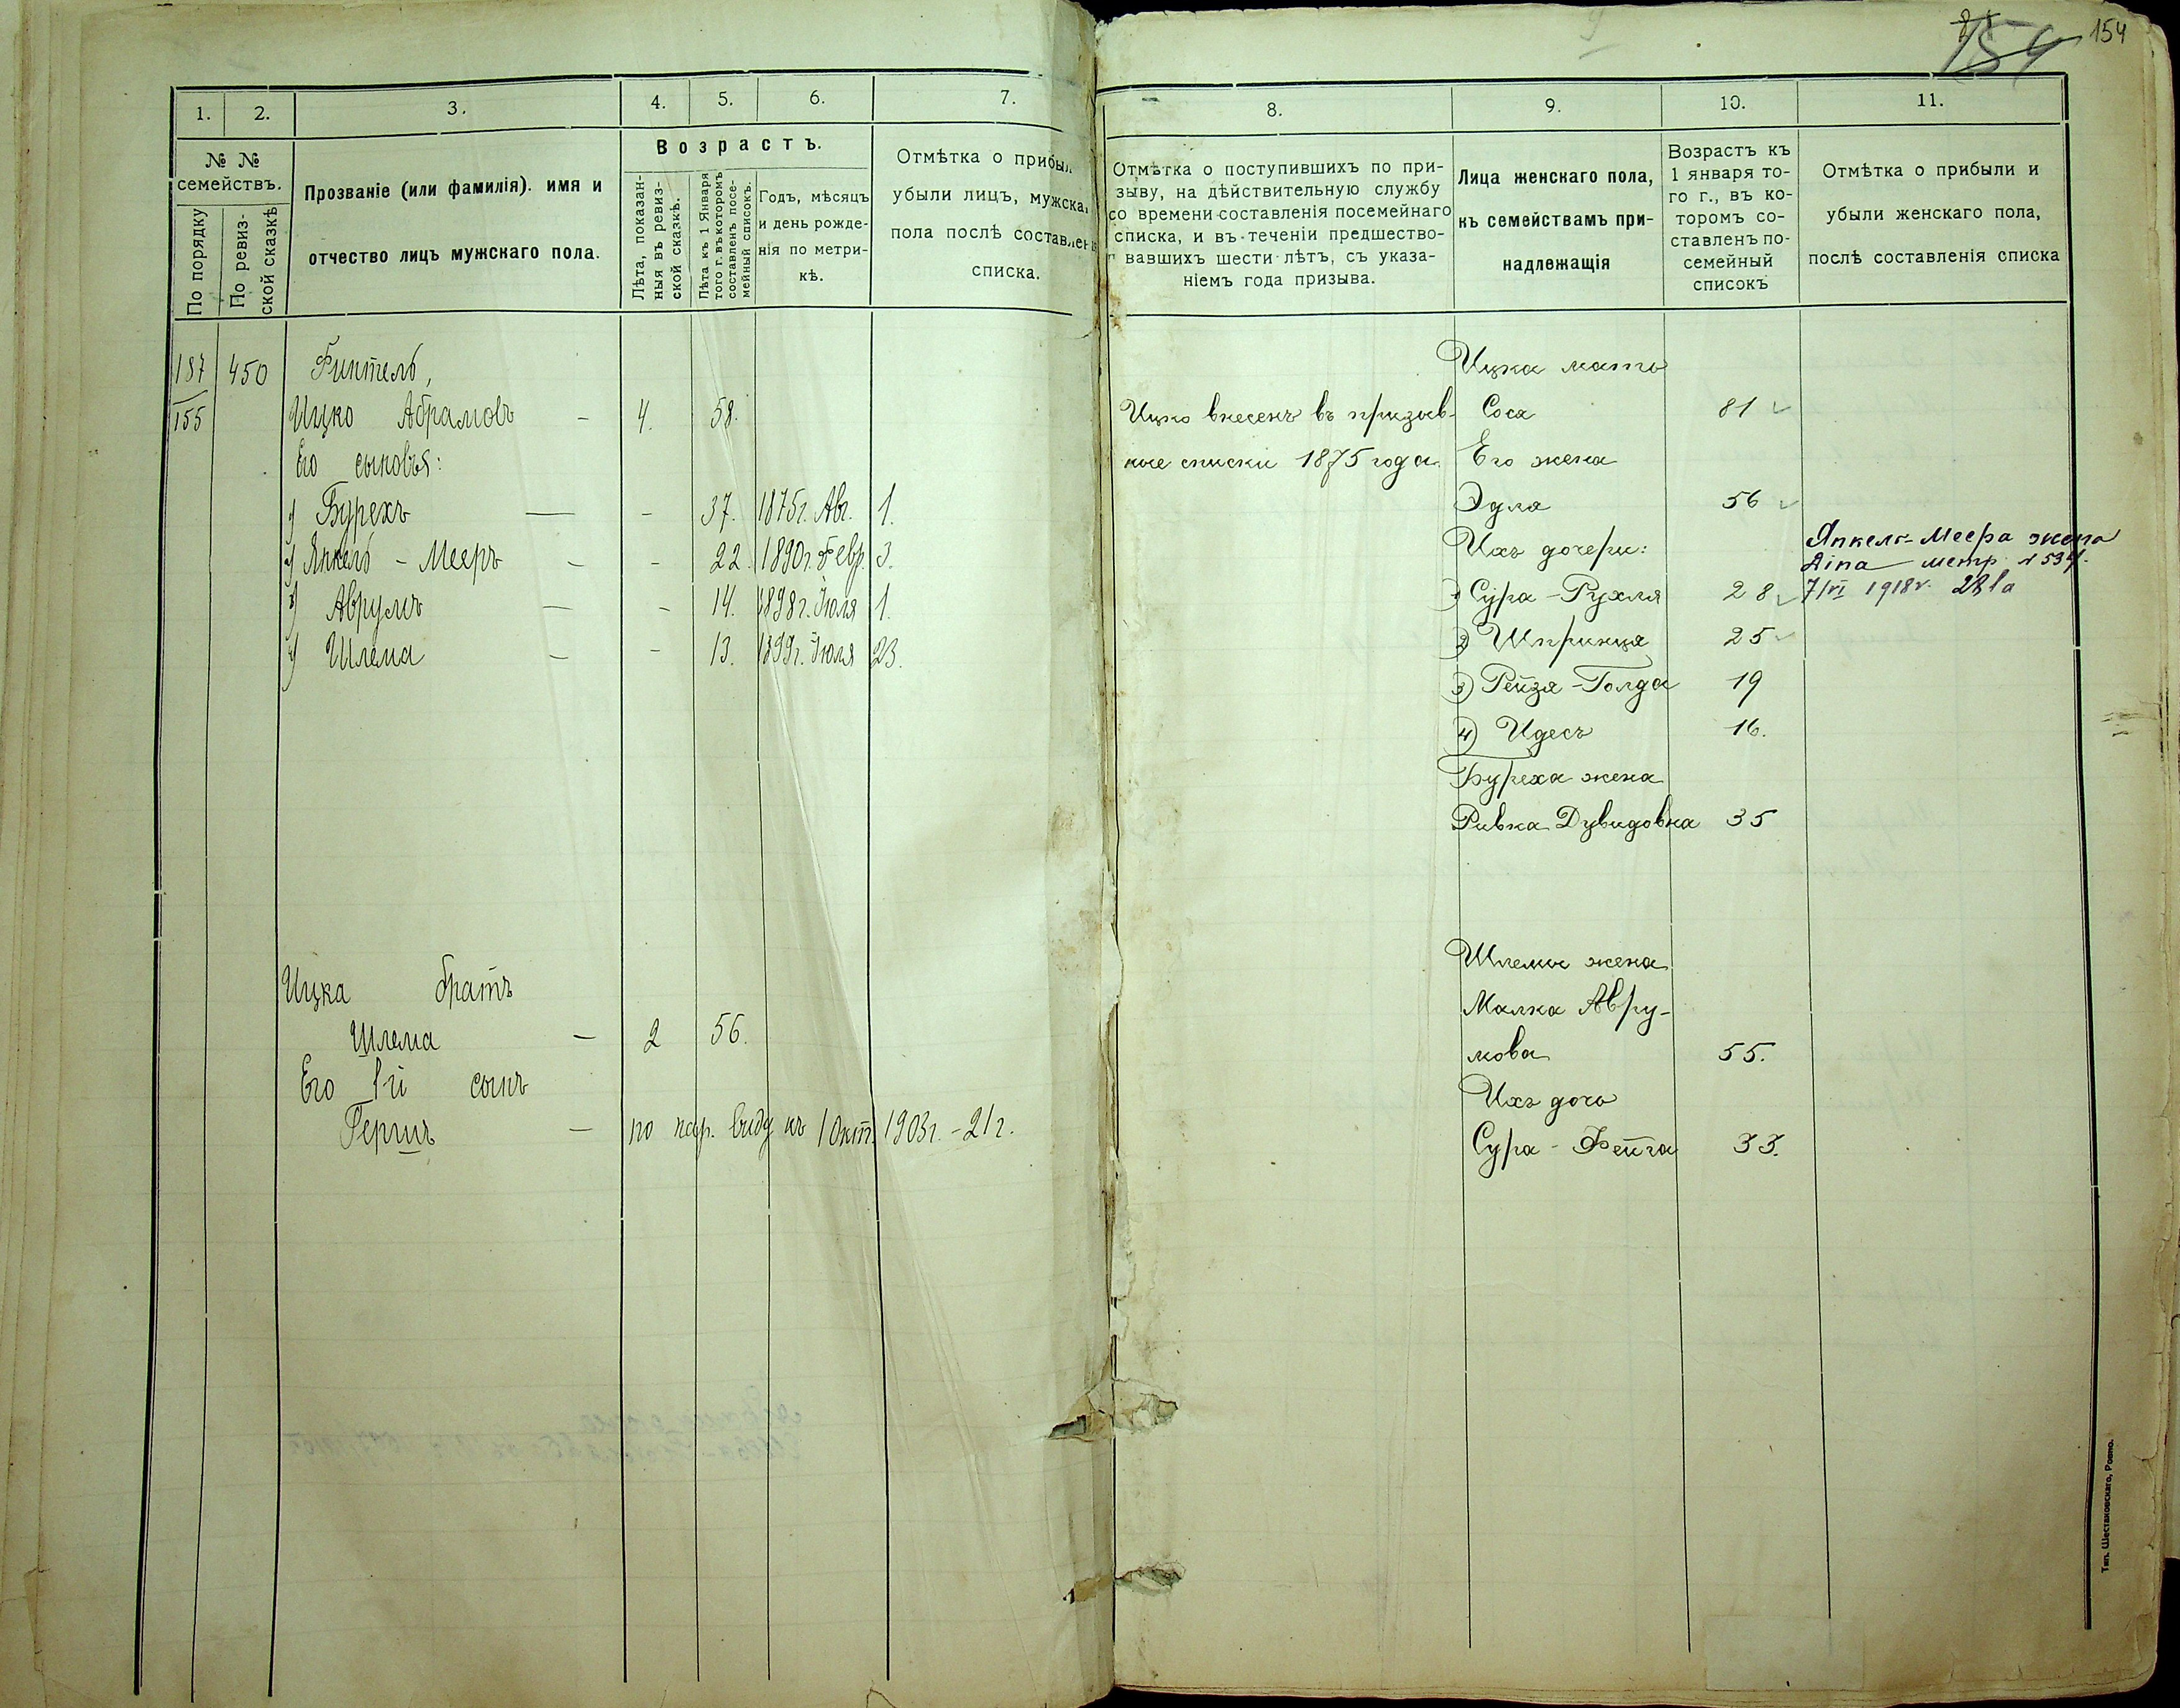 154
154
1. 2. 3. 4. 5. 6. 7.
№ № семействъ.
По порядку
По ревиз-
ской сказкѣ
Прозваніе (или фамилія). имя и
отчество лицъ мужскаго пола.
Возрастъ.
Лѣта, показан-
ныя въ ревиз-
ской сказкѣ.
Лѣта къ 1 Января
того г. въ которомъ
составленъ посе-
мейный списокъ.
Годъ, мѣсяцъ
и день рожде-
нія по метри-
кѣ.
Отмѣтка о прибыл
убыли лицъ, мужска
пола послѣ составлен
списка.
187 450 Финтель,
155 Ицко Абрамовъ - 4. 58.
Его сыновья:
1) Бурехъ — - 37. 1875г. Авг. 1.
2) Янкель - Мееръ - - 22. 1890г. Февр. 3.
3) Аврумъ — - 14. 1898г. Іюля 1.
4) Шлема — - 13. 1899г. Іюля 23.
Ицка братъ
Шлема — 2 56.
Его 1-й сынъ
Гершъ — по нар. виду къ 1 Окт. 1903г. - 21г.
8. 9. 10. 11.
Отмѣтка о поступившихъ по при-
зыву, на дѣйствительную службу
со времени составленія посемейнаго
списка, и въ теченіи предшество-
вавшихъ шести лѣтъ, съ указа-
ніемъ года призыва.
Лица женскаго пола,
къ семействамъ при-
надлежащія
Возрастъ къ
1 января то-
го г., въ ко-
торомъ со-
ставленъ по-
семейный
списокъ
Отмѣтка о прибыли и
убыли женскаго пола,
послѣ составленія списка
Ицка мать
Ицко внесенъ въ призыв- Сося 81
ные списки 1875 года. Его жена
Эдля 56
Ихъ дочери:
Янкель-Меера жена
Діna метр. № 534.
1) Сура - Рухля 28 7/VI 1918г.
2) Шпринця 25
3) Рейзя - Голда 19
4) Идесъ 16.
Буреха жена
Ривка Дувидовна 35
Шлемы жена
Малка Авру-
мова 55.
Ихъ дочь
Сура - Фейга 33.
Тип. Шестаковскаго, Ровно.